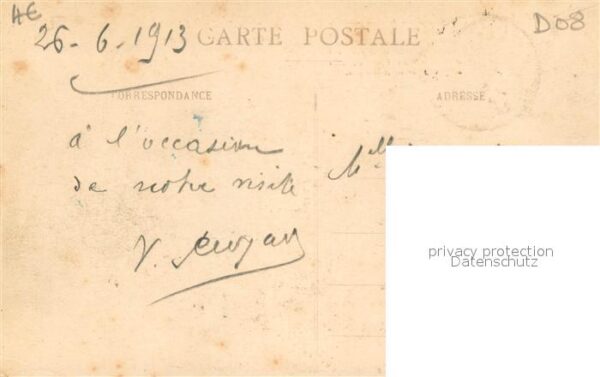 4€
D08
26-6-1913 CARTE POSTALE
CORRESPONDANCE
ADRESSE
à l'occasion
de notre visite
Mlle
privacy protection
Datenschutz
V.